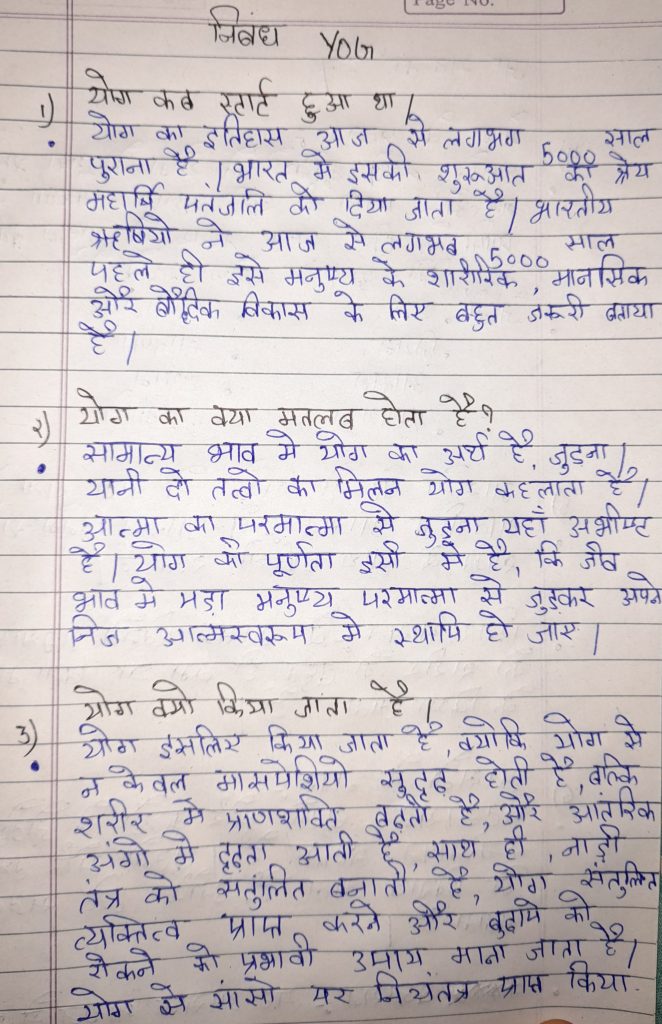 Page No.
निबंध YOG
1) योग कब स्टार्ट हुआ था |
योग का इतिहास आज से लगभग 5000 साल
पुराना है | भारत मे इसकी शुरूआत का श्रेय
महार्षि पतंजलि को दिया जाता है | भारतीय
ऋषियो ने आज से लगभब 5000 साल
पहले ही इसे मनुष्य के शारीरिक, मानसिक
और बौद्धिक विकास के लिए बहुत जरूरी बताया
है |
2) योग का क्या मतलब होता है ?
सामान्य भाव मे योग का अर्थ है, जुड़ना |
यानी दो तत्वो का मिलन योग कहलाता है |
आत्मा का परमात्मा से जुड़ना यहाँ अभीष्ट
है | योग की पूर्णता इसी मे है, कि जीव
भाव मे पड़ा मनुष्य परमात्मा से जुड़कर अपने
निज आत्मस्वरूप मे स्थापि हो जाए |
3) योग क्यो किया जाता है |
योग इसलिए किया जाता है, क्योकि योग से
न केवल मासपेशियो सुदृढ़ होती है, बल्कि
शरीर मे प्राणशक्ति बढ़ती है, और आंतरिक
अंगो मे दृढ़ता आती है, साथ ही, नाड़ी
तंत्र को संतुलित बनाती है, योग संतुलित
व्यक्तित्व प्राप्त करने और बुढ़ापे को
रोकने को प्रभावी उपाय माना जाता है |
योग से सांसो पर नियंत्र प्राप्त किया.